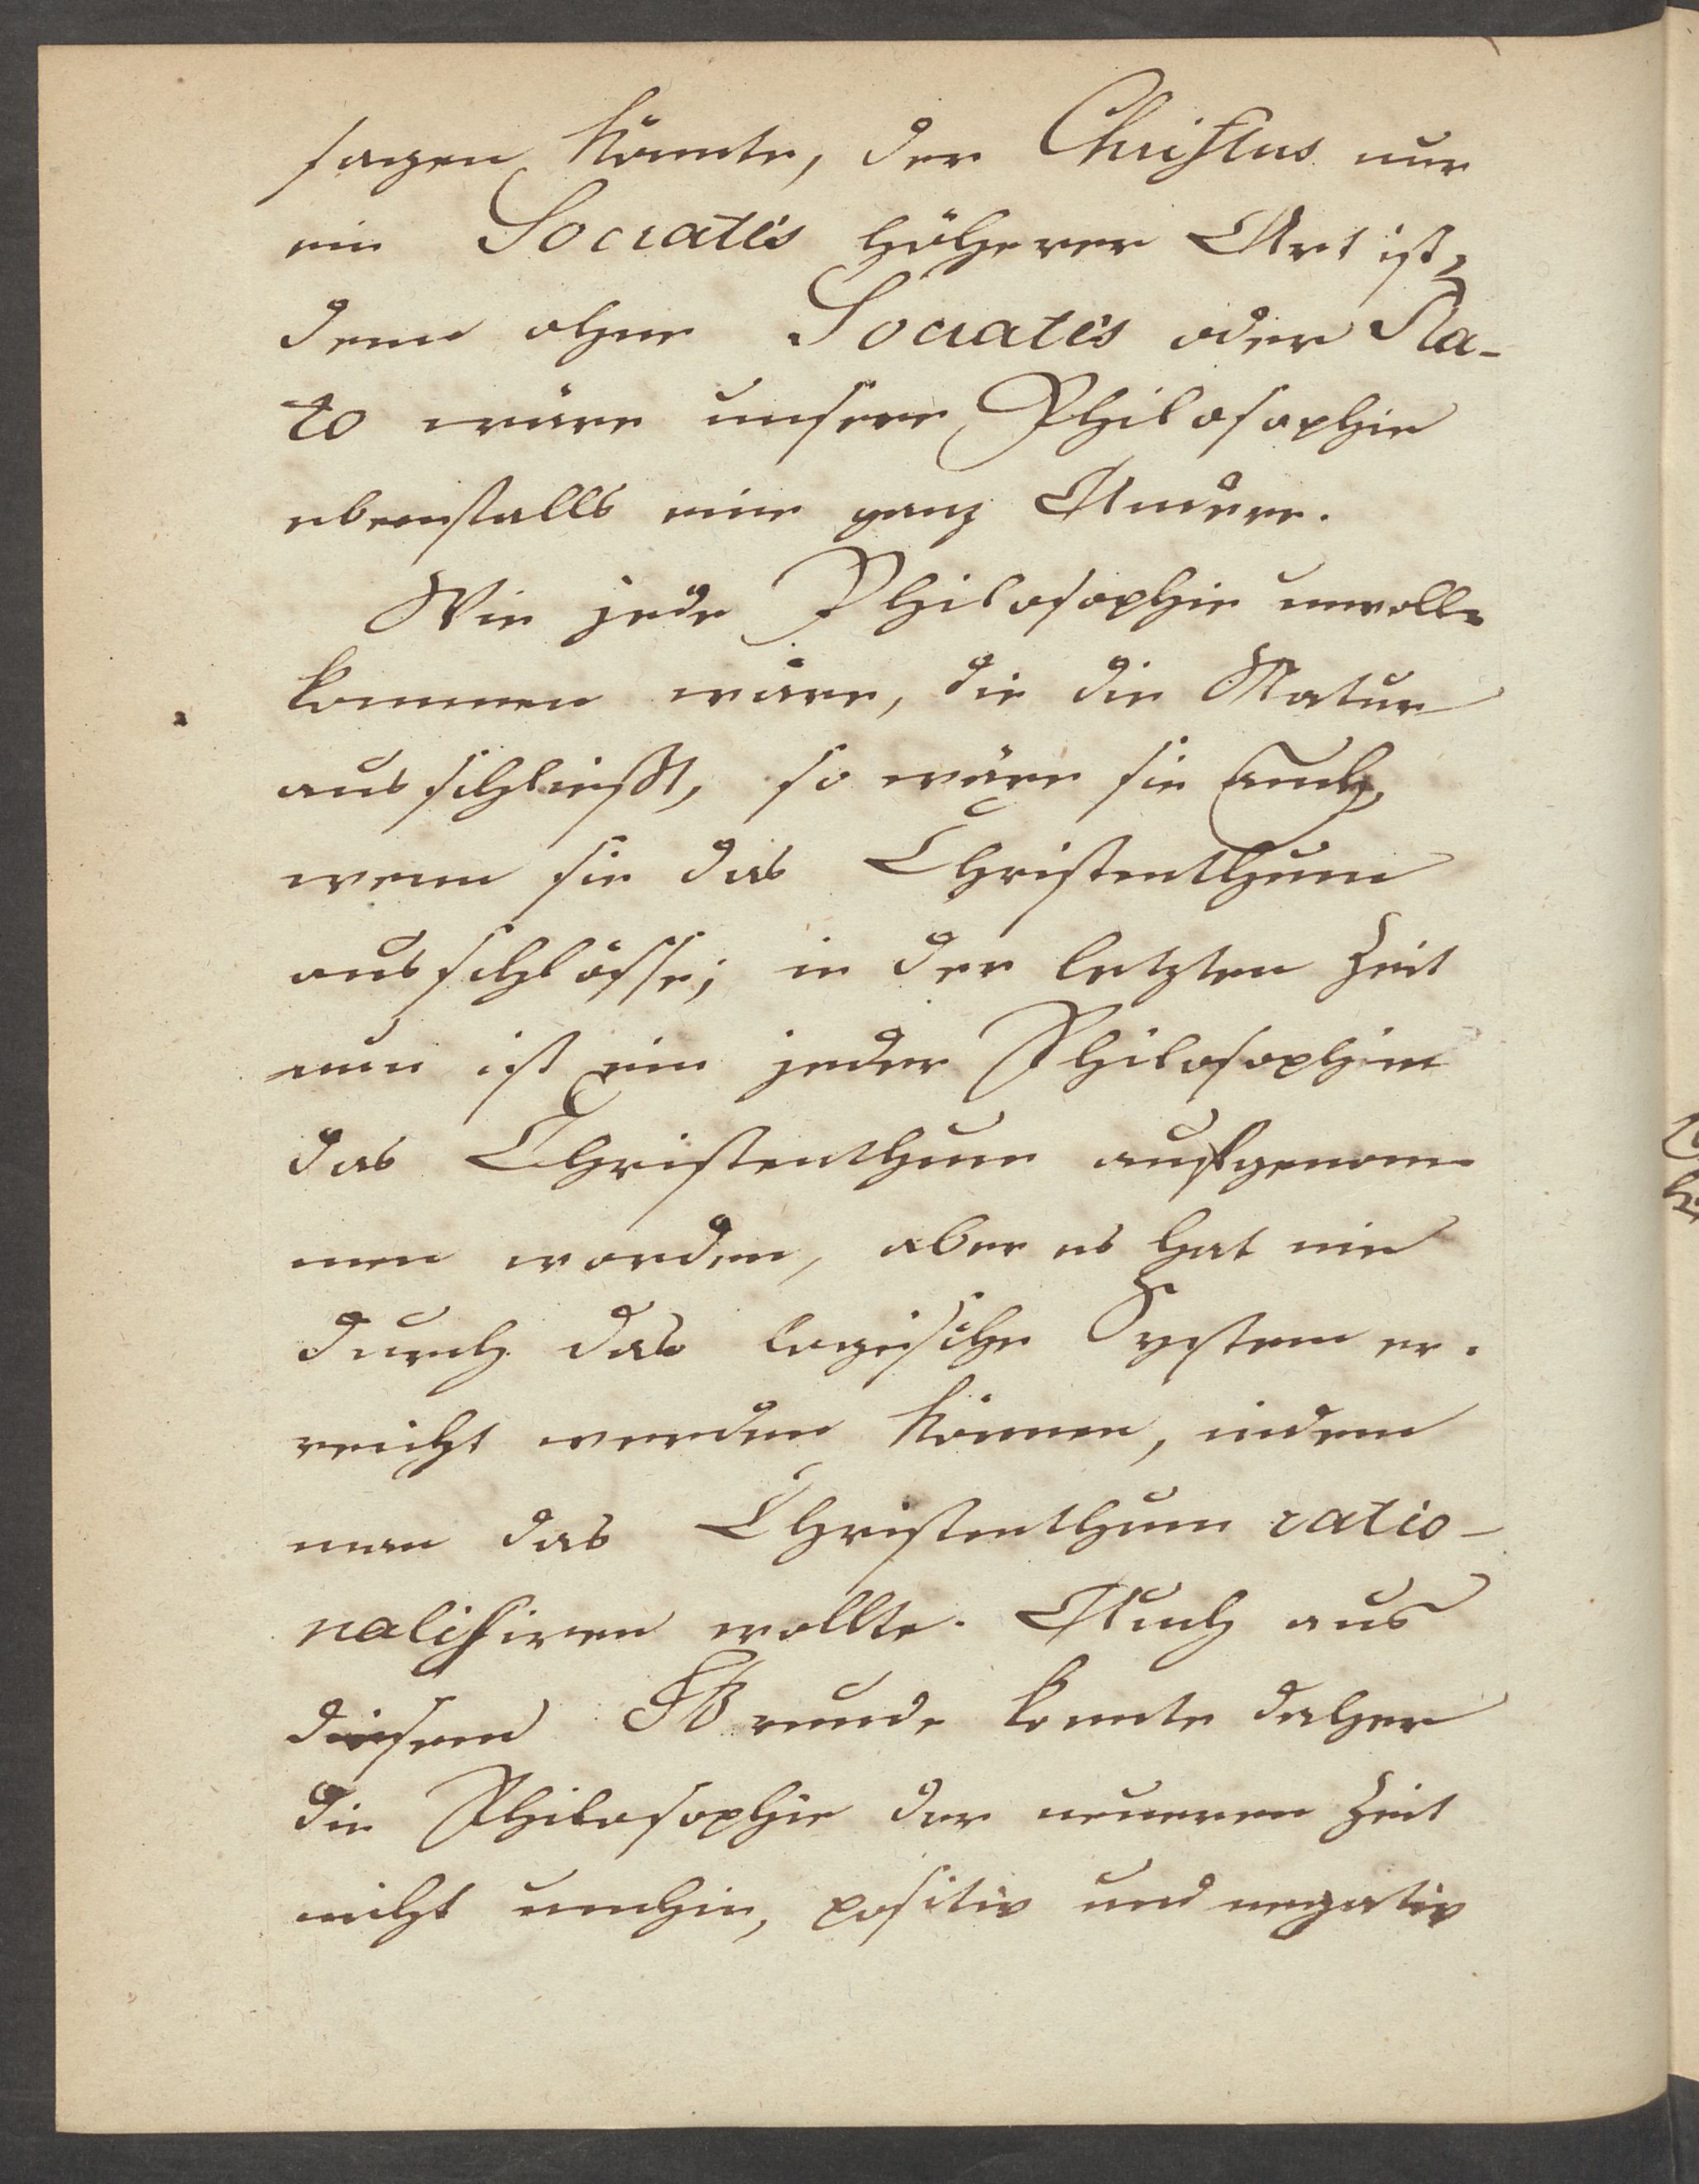 sagen könnte, der Christus nur
ein Socrates höherer Art ist,
denn ohne Socrates oder Pla-
to wäre unsere Philosophie
ebenfalls eine ganz Andere.
Wie jede Philosophie unvoll-
kommen wäre, die die Natur
ausschliesst, so wäre sie auch,
wenn sie das Christenthum
ausschlösse; in der letzten Zeit
nun ist ein jeder Philosophie
das Christenthum aufgenom-
men worden, aber es hat nie
durch das logische System er-
reicht werden können, indem
man das Christenthum ratio-
nalisiren wollte. Auch aus
diesem Grunde konnte daher
die Philosophie der neueren Zeit
nicht umhin, positiv und negativ